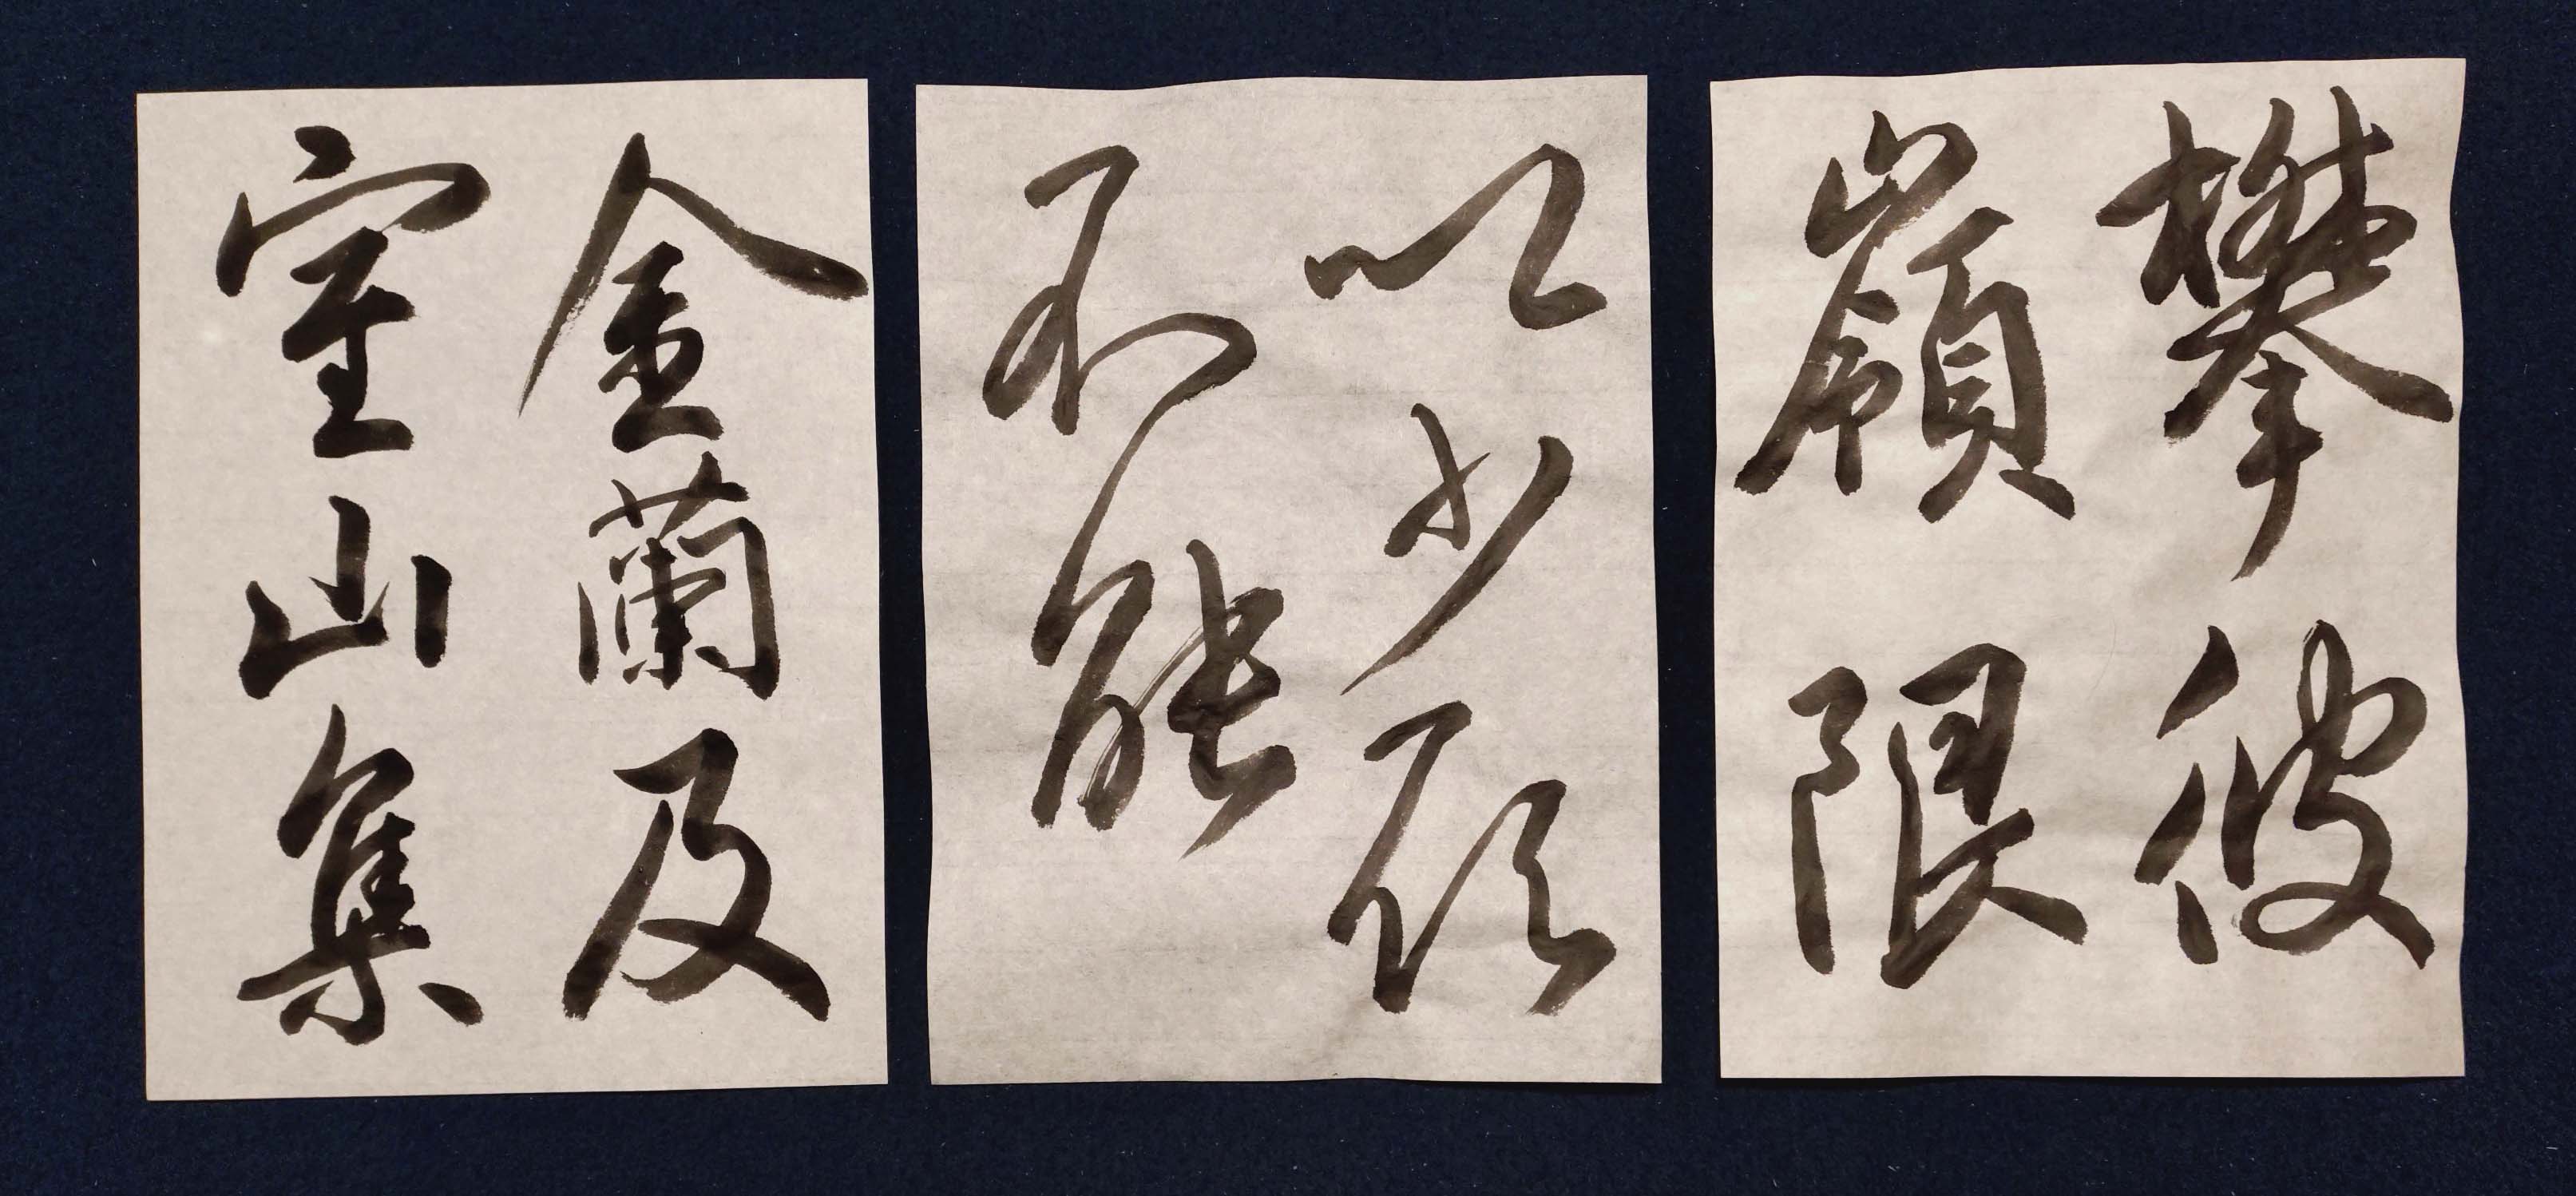 攀彼
嶺限
以少願
不能
金蘭及
室山集